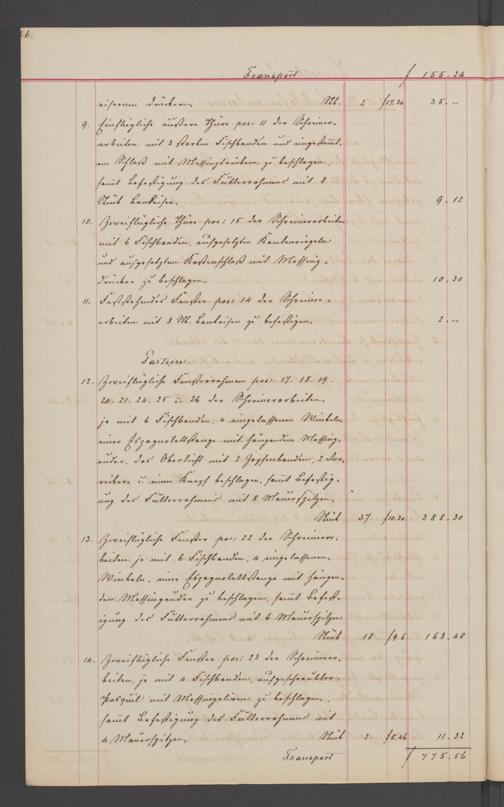 66.
Transport f 155.24
eisernen Drückern St. 2 f 17.20 35.--
9. Einflüglige äußere Thüre pos: 11 der Schreiner-
arbeiten mit 3 starken Fischbanden und eingestemt.
em Schloß mit Messingdrückern zu beschlagen
samt Befestigung des Futterrahmens mit 8
Stück Bankeisen. 9.12
10. Zweiflüglige Thüre pos: 15 der Schreinerarbeiten
mit 6 Fischbanden, aufgesetzten Kantenriegeln
und aufgesetztem Kastenschloß mit Messing-
drücker zu beschlagen. 10.30
11. Feststehendes Fenster pos: 14 der Schreiner-
arbeiten mit 8 St. Bankeisen zu befestigen. 2.--
Parterre.
12. Zweiflüglige Fensterrahmen pos: 17. 18. 19.
20. 21. 24. 25 26 der Schreinerarbeiten.
je mit 6 Fischbanden, 4 eingelassenen Winkeln
einer Espagnolettstange mit hängendem Messing-
ruder, das Oberlicht mit 2 Zapfenbanden, 2 Vor-
reibern & einem Knopf beschlagen, samt Befestig-
ung des Futterrahmens mit 8 Mauerspitzen.
Stück 37 f 10.30 388.30
13. Zweiflüglige Fenster pos: 22 der Schreinerar-
beiten je mit 6 Fischbanden, 4 eingelassenen
Winkeln, einer Espagnolettstange mit hängen-
dem Messingruder zu beschlagen, samt Befest-
igung des Futterrahmens mit 6 Mauerspitzen
Stück 18 f 9.6 163.48
14. Zweiflüglige Fenster pos: 23 der Schreinerar-
beiten, je mit 4 Fischbanden, aufgeschraubter
Pasquil mit Messingoliven zu beschlagen,
samt Befestigung des Futterrahmens mit
4 Mauerspitzen Stück 2 f 5.46 11.32
Transport f 775.56